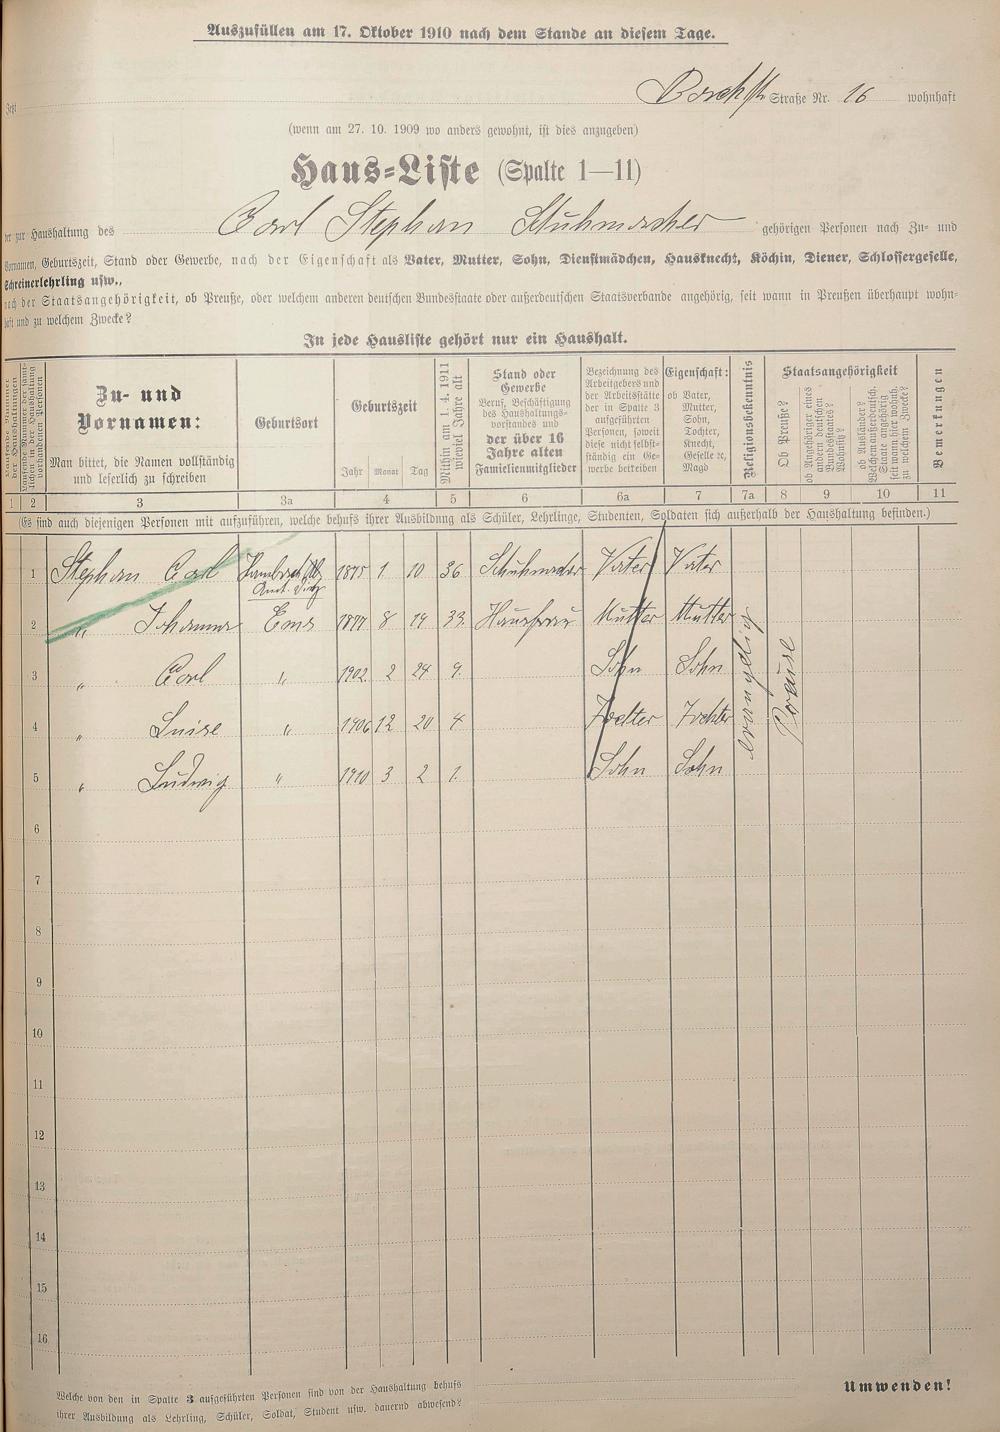 Auszufüllen am 17. Oktober 1910 nach dem Stande an diesem Tage.
Jetzt Straße Nr. 16 wohnhaft
(wenn am 27. 10. 1909 wo anders gewohnt, ist dies anzugeben)
Haus-Liste (Spalte 1—11)
der zur Haushaltung des Carl Stephan Schuhmacher gehörigen Personen nach Zu- und
Vornamen, Geburtszeit, Stand oder Gewerbe, nach der Eigenschaft als Vater, Mutter, Sohn, Dienstmädchen, Hausknecht, Köchin, Diener, Schlossergeselle,
Schreinerlehrling usw.,
nach der Staatsangehörigkeit, ob Preuße, oder welchem anderen deutschen Bundesstaate oder außerdeutschen Staatsverbande angehörig, seit wann in Preußen überhaupt wohn-
haft und zu welchem Zwecke?
In jede Hausliste gehört nur ein Haushalt.
Laufende Nummer der Haushaltungen
Laufende Nummer der sämtlichen in der Haushaltung vorhandenen Personen
Zu- und
Vornamen:
Man bittet, die Namen vollständig
und leserlich zu schreiben
Geburtsort
Geburtszeit
Jahr Monat Tag
Mithin am 1. 4. 1911
wieviel Jahre alt
Stand oder
Gewerbe
Beruf, Beschäftigung
des Haushaltungs-
vorstandes und
der über 16
Jahre alten
Familienmitglieder
Bezeichnung des
Arbeitgebers und
der Arbeitsstätte
der in Spalte 3
aufgeführten
Personen, soweit
diese nicht selbst-
ständig ein Ge-
werbe betreiben
Eigenschaft:
ob Vater,
Mutter,
Sohn,
Tochter,
Knecht,
Geselle ꝛc,
Magd
Religionsbekenntnis
Staatsangehörigkeit
Ob Preuße?
ob Angehöriger eines
andern deutschen
Bundesstaates?
Wohnsitz?
ob Ausländer?
Welchem außerdeutsch.
Staate angehörig
seit wann hier wohnh.
zu welchem Zwecke?
Bemerkungen
1 2 3 3a 4 5 6 6a 7 7a 8 9 10 11
(Es sind auch diejenigen Personen mit aufzuführen, welche behufs ihrer Ausbildung als Schüler, Lehrlinge, Studenten, Soldaten sich außerhalb der Haushaltung befinden.)
1 Stephan Carl Hambach 1875 1 10 36 Schuhmacher Vater Vater
Amt. Diez
2 " Johanna Ems 1877 8 19 33 Hausfrau Mutter Mutter
3 " Carl " 1902 2 24 9 Sohn Sohn
4 " Luise " 1906 12 20 4 Tochter Tochter
5 " Ludwig " 1910 3 2 1 Sohn Sohn
evangelig
Preuse
6
7
8
9
10
11
12
13
14
15
16
Welche von den in Spalte 3 aufgeführten Personen sind von der Haushaltung behufs
ihrer Ausbildung als Lehrling, Schüler, Soldat, Student usw. dauernd abwesend?
Umwenden!